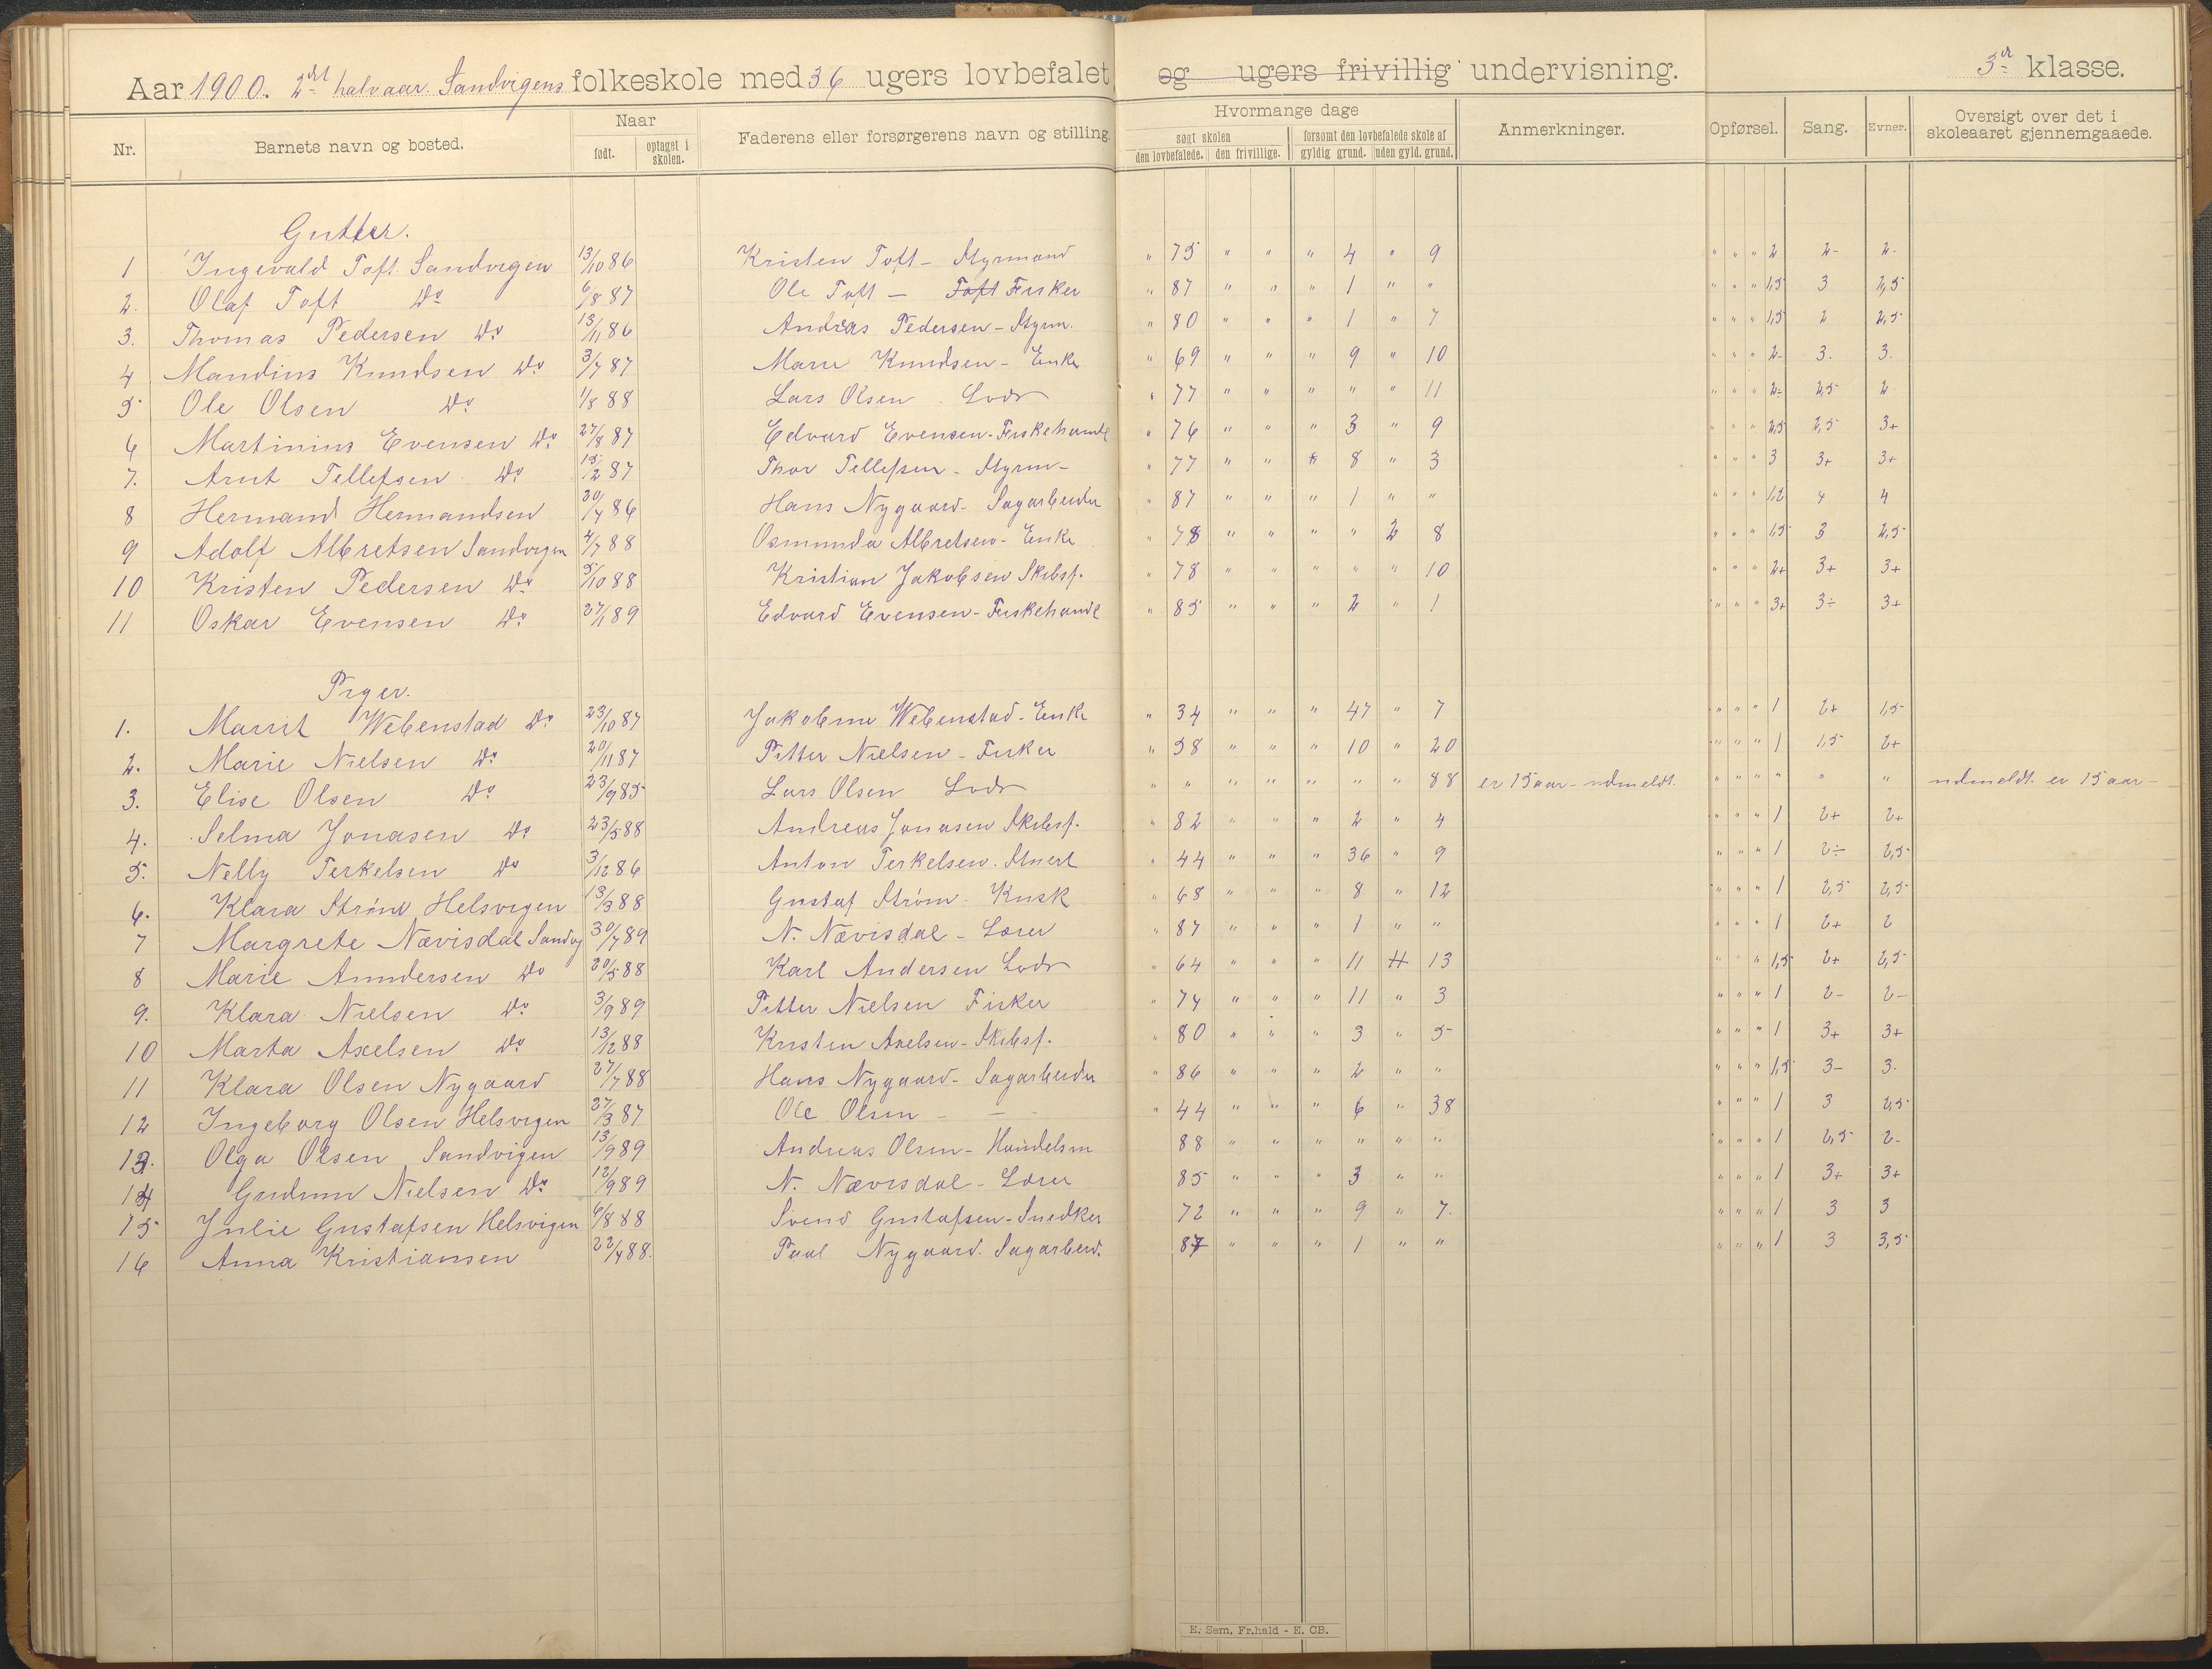 Aar 1900. 2det halvaar. Sandvigens folkeskole med 36 ugers lovbefalet og ugers frivillig undervisning. 3die klasse.
Nr. Barnets navn og bosted. Naar født. optaget i skolen. Faderens eller forsørgerens navn og stilling. Hvormange dage søgt skolen den lovbefalede. den frivillige. forsømt den lovbefalede skole af gyldig grund. uden gyld. grund. Anmerkninger. Opførsel. Sang. Evner. Oversigt over det i skoleaaret gjennemgaaede.
Gutter.
1 Ingevald Toft Sandvigen 13/10 86 Kristen Toft - Styrmand " 75 " " " 4 " 9 " " " 2 2- 2-
2. Olaf Toft Do 6/8 87 Ole Toft - Toft Fisker " 87 " " " 1 " " " " " 1,5 3 2,5
3. Thomas Pedersen Do 13/11 86 Andreas Pedersen - Styrm. " 80 " " " 1 " 7 " " " 1,5 2 2,5
4 Mandius Knudsen Do 3/7 87 Marie Knudsen - Enke " 69 " " " 9 " 10 " " " 2- 3. 3.
5 Ole Olsen Do 1/8 88 Lars Olsen Lods " 77 " " " " " 11 " " " 2÷ 2,5 2
6 Martinius Evensen Do 27/8 87 Edvard Evensen - Fiskehandl " 76 " " " 3 " 9 " " " 2,5 2,5 3+
7. Arnt Tellefsen Do 15/2 87 Thor Tellefsen - Styrm - " 77 " " " 8 " 3 " " " 3 3+ 3+
8 Hermand Hermandsen 20/4 86 Hans Nygaard - Sagarbeider " 87 " " " 1 " " " " " 1,2 4 4
9 Adolf Albretsen Sandvigen 4/7 88 Osmunda Albretsen - Enke " 78 " " " " 2 8 " " " 1,5 3 2,5
10 Kristen Pedersen Do 5/10 88 Kristian Jakobsen Skibsf. " 78 " " " " " 10 " " " 2+ 3+ 3+
11 Oskar Evensen Do 27/1 89 Edvard Evensen - Fiskehandl " 85 " " " 2 " 1 " " " 3+ 3÷ 3+
Piger.
1. Marrit Webenstad Do 23/10 87 Jakobine Webenstad - Enke " 34 " " " 47 " 7 " " " 1 2+ 1,5
2. Marie Nielsen Do 20/11 87 Pitter Nielsen - Fisker " 58 " " " 10 " 20 " " " 1 1,5 2+
3. Elise Olsen Do 23/9 85 Lars Olsen Lods " " " " " " " 88 er 15 aar - udmeldt. " " " " " " udmeldt. er 15 aar -
4. Selma Jonasen Do 23/5 88 Andreas Jonasen Skibsf. " 82 " " " 2 " 4 " " " 1 2+ 2+
5. Nelly Terkelsen Do 3/12 86 Anton Terkelsen. " 44 " " " 36 " 9 " " " 1 2÷ 2,5
6. Klara Strøm Helsvigen 13/3 88 Gustaf Strøm - Kusk " 68 " " " 8 " 12 " " " 1 2,5 2,5
7 Margrete Nævisdal Sandvg 30/7 89 N. Nævisdal - Lærer " 87 " " " 1 " " " " " 1 2+ 2
8 Marie Anndersen Do 20/5 88 Karl Andersen Lods " 64 " " " 11 " 13 " " " 1,5 2+ 2,5
9. Klara Nielsen Do 3/9 89 Pitter Nielsen Fisker " 74 " " " 11 " 3 " " " 1 2- 2-
10 Marta Axelsen Do 13/12 88 Kristen Axelsen - Skibsf. " 80 " " " 3 " 5 " " " 1 3+ 3+
11 Klara Olsen Nygaard 27/7 88 Hans Nygaard - Sagarbeider " 86 " " " 2 " " " " " 1,5 3- 3.
12 Ingeborg Olsen Helsvigen 27/3 87 Ole Olsen - - " 44 " " " 6 " 38 " " " 1 3 2,5
13. Olga Olsen Sandvigen 13/9 89 Andreas Olsen - Handelsm 88 " " " " " " " " " 1 2,5 2-
14 Gudrun Nielsen Do 12/9 89 N. Nævisdal - Lærer 85 " " " 3 " " " " " 1 3+ 3+
15 Julie Gustafsen Helsvigen 6/8 88 Svend Gustafsen - Snedker 72 " " " 9 " 7. " " " 1 3 3
16 Anna Kristiansen 22/4 88. Paul Nygaard. Sagarbeid. 87 " " " 1 " " " " " 1 3 3,5
E. Sem, Fr.hald - E. CB.